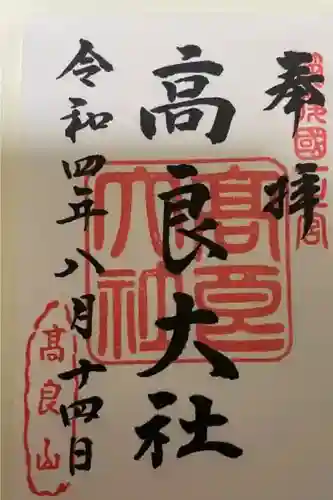 奉拝
筑後國一之宮
高良大社
髙良大社
令和四年八月十四日
高良山